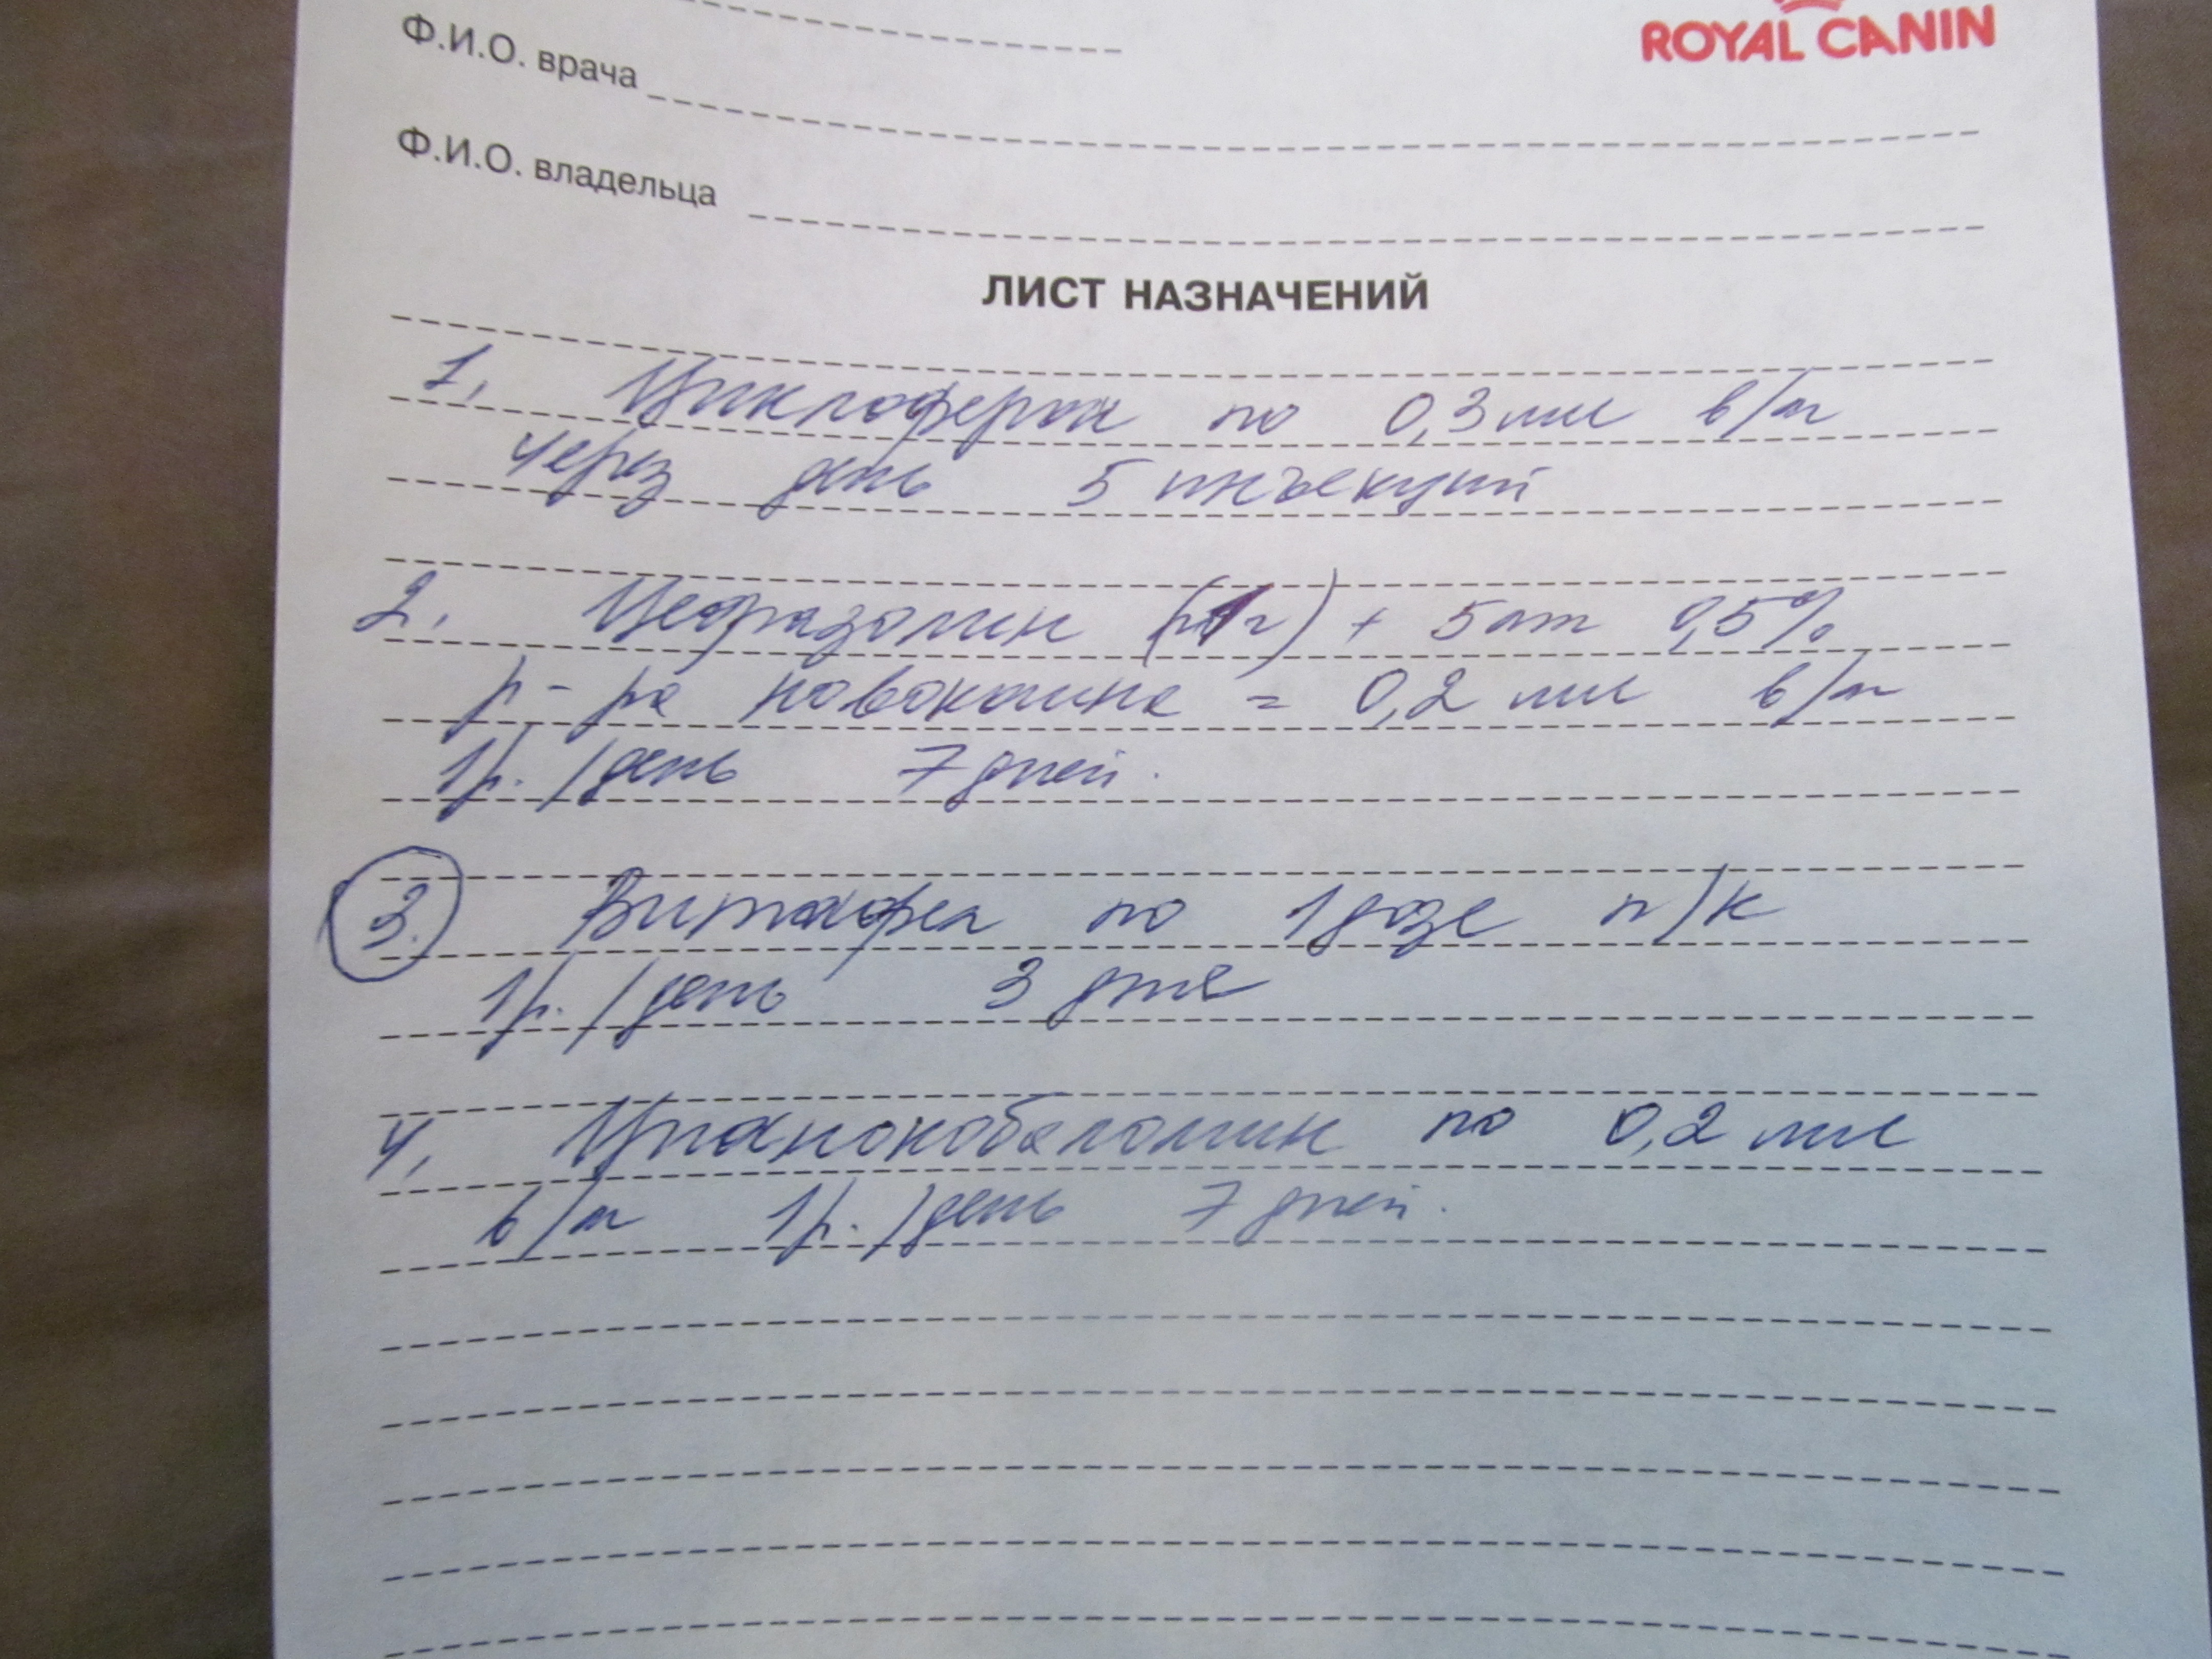 ROYAL CANIN
Ф.И.О. врача
Ф.И.О. владельца
ЛИСТ НАЗНАЧЕНИЙ
1. Циклоферон по 0,3 мл в/м
через день 5 инъекций
2. Цефазолин (1г) + 5 мл 0,5%
р-ра новокаина = 0,2 мл в/м
1р./день 7 дней.
3. Витафел по 1 дозе п/к
1р./день 3 дня
4. Цианокобаламин по 0,2 мл
в/м 1р./день 7 дней.